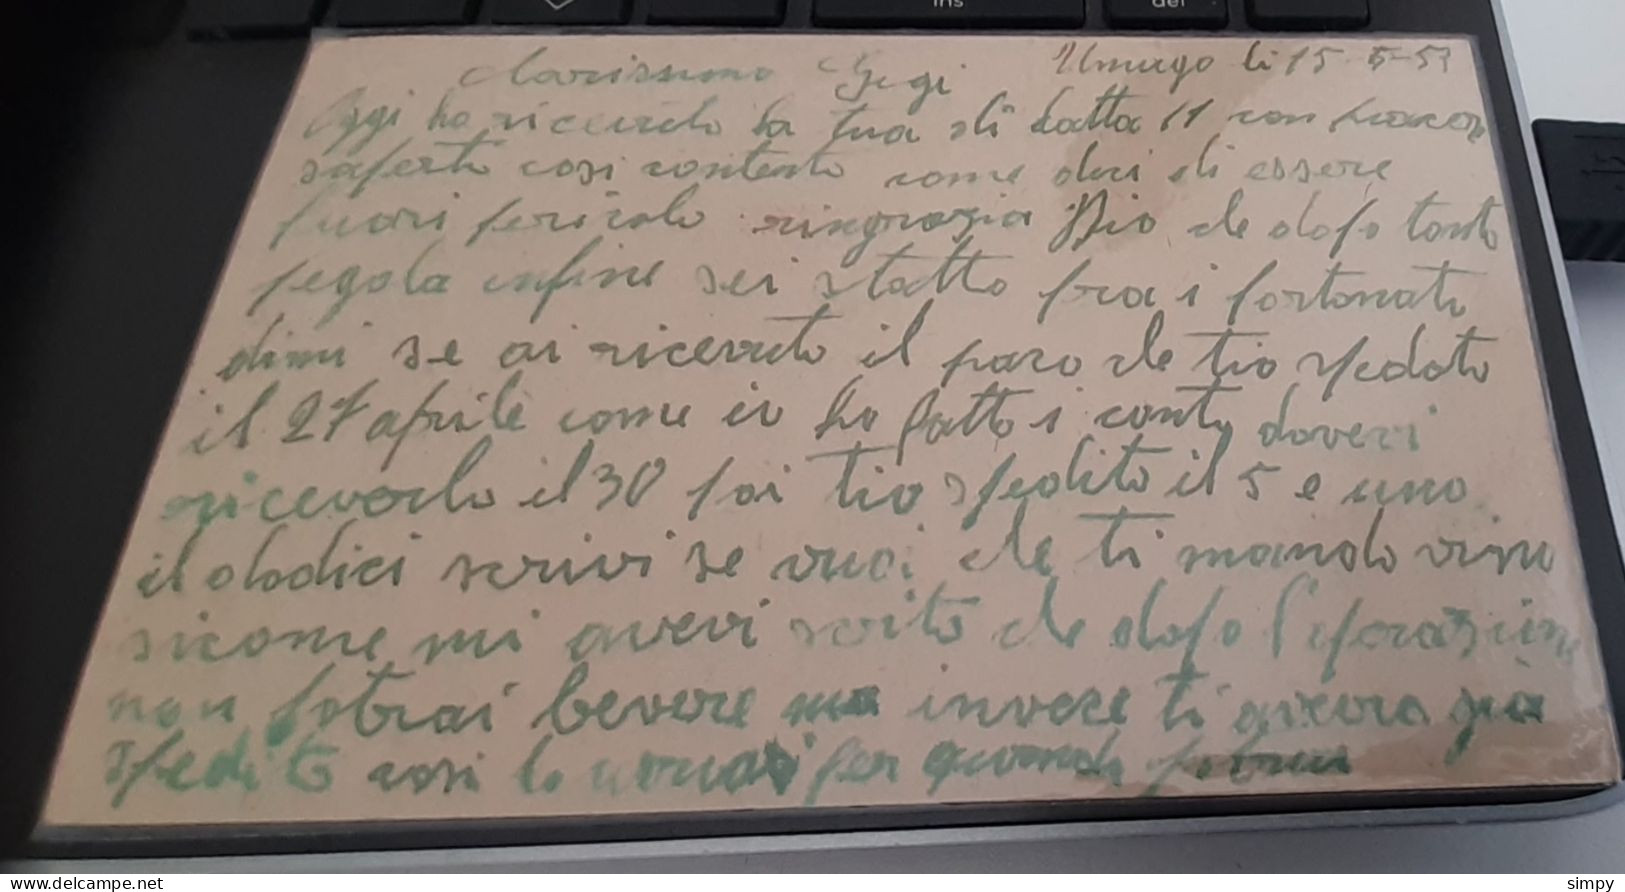 ins
del
Carissimo Gigi Umago li 15-5-53
Oggi ho ricevuto la tua di datta 11 con piacere
saperti cosi contento come dici di essere
fuori pericolo ringrazia Dio che dopo tanto
pegola infine sei statto fra i fortonati
dimi se ai ricevuto il paco che tio spedito
il 27 aprile come io ho fatto i conti doveri
riceverlo il 30 poi tio spedito il 5 e uno
il dodici scrivi se vuoi che ti mando vino
sicome mi avevi scrito che dopo l'
non potrai bevere ma invece ti aveva già
spedito cosi lo per quando potrai
www.delcampe.net
simpy